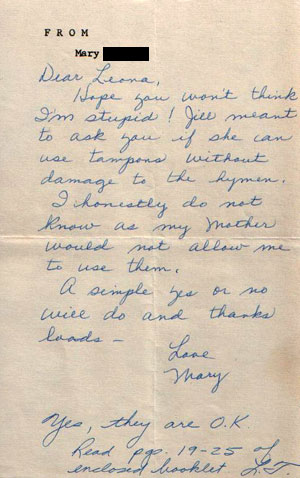 FROM
Mary
Dear Leona,
Hope you won't think
I'm stupid! Jill meant
to ask you if she can
use tampons without
damage to the hymen.
I honestly do not
know as my Mother
would not allow me
to use them.
A simple yes or no
will do and thanks
loads –
Love
Mary
Yes, they are O.K.
Read pgs. 19-25 of
enclosed booklet L.T.